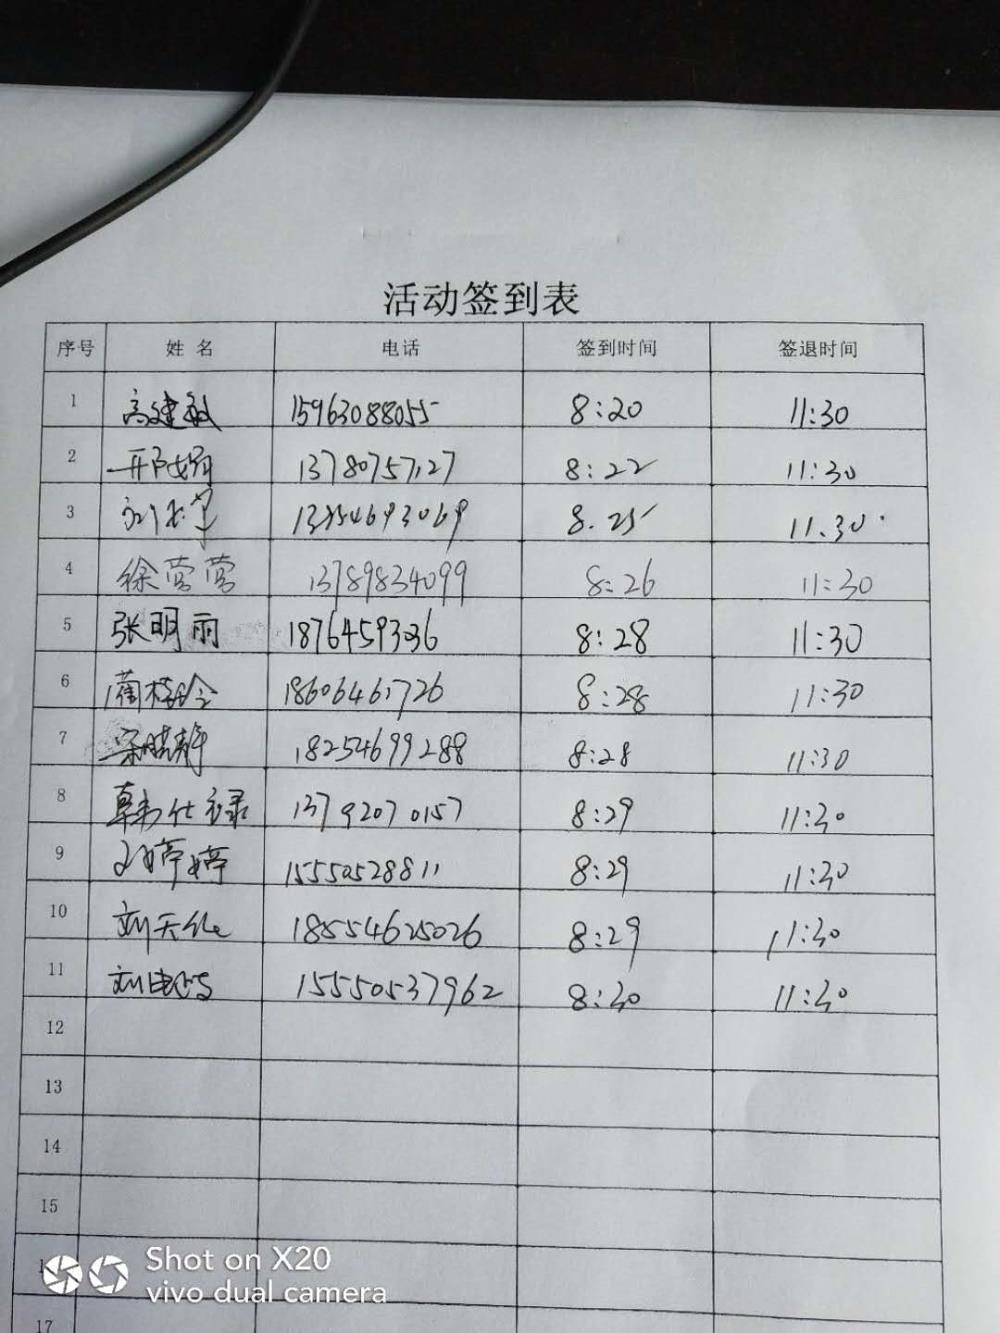 活动签到表
序号 姓名 电话 签到时间 签退时间
1 高建敏 15963088055 8:20 11:30
2 邢娟 13780757127 8:22 11:30
3 8.25 11.30
4 徐莺莺 13789834099 8:26 11:30
5 张明丽 8:28 11:30
6 蔺桂玲 18606461726 8:28 11:30
7 宋晓静 18254699288 8:28 11:30
8 韩仕禄 13792070157 8:29 11:30
9 婷婷 15550528811 8:29 11:30
10 刘天伦 18554625026 8:29 11:30
11 15550537962 8:30 11:30
12
13
14
15
17
Shot on X20
vivo dual camera